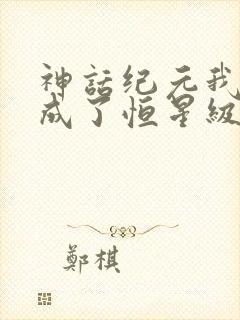 神話纪元我
成了恒星级
鄭棋